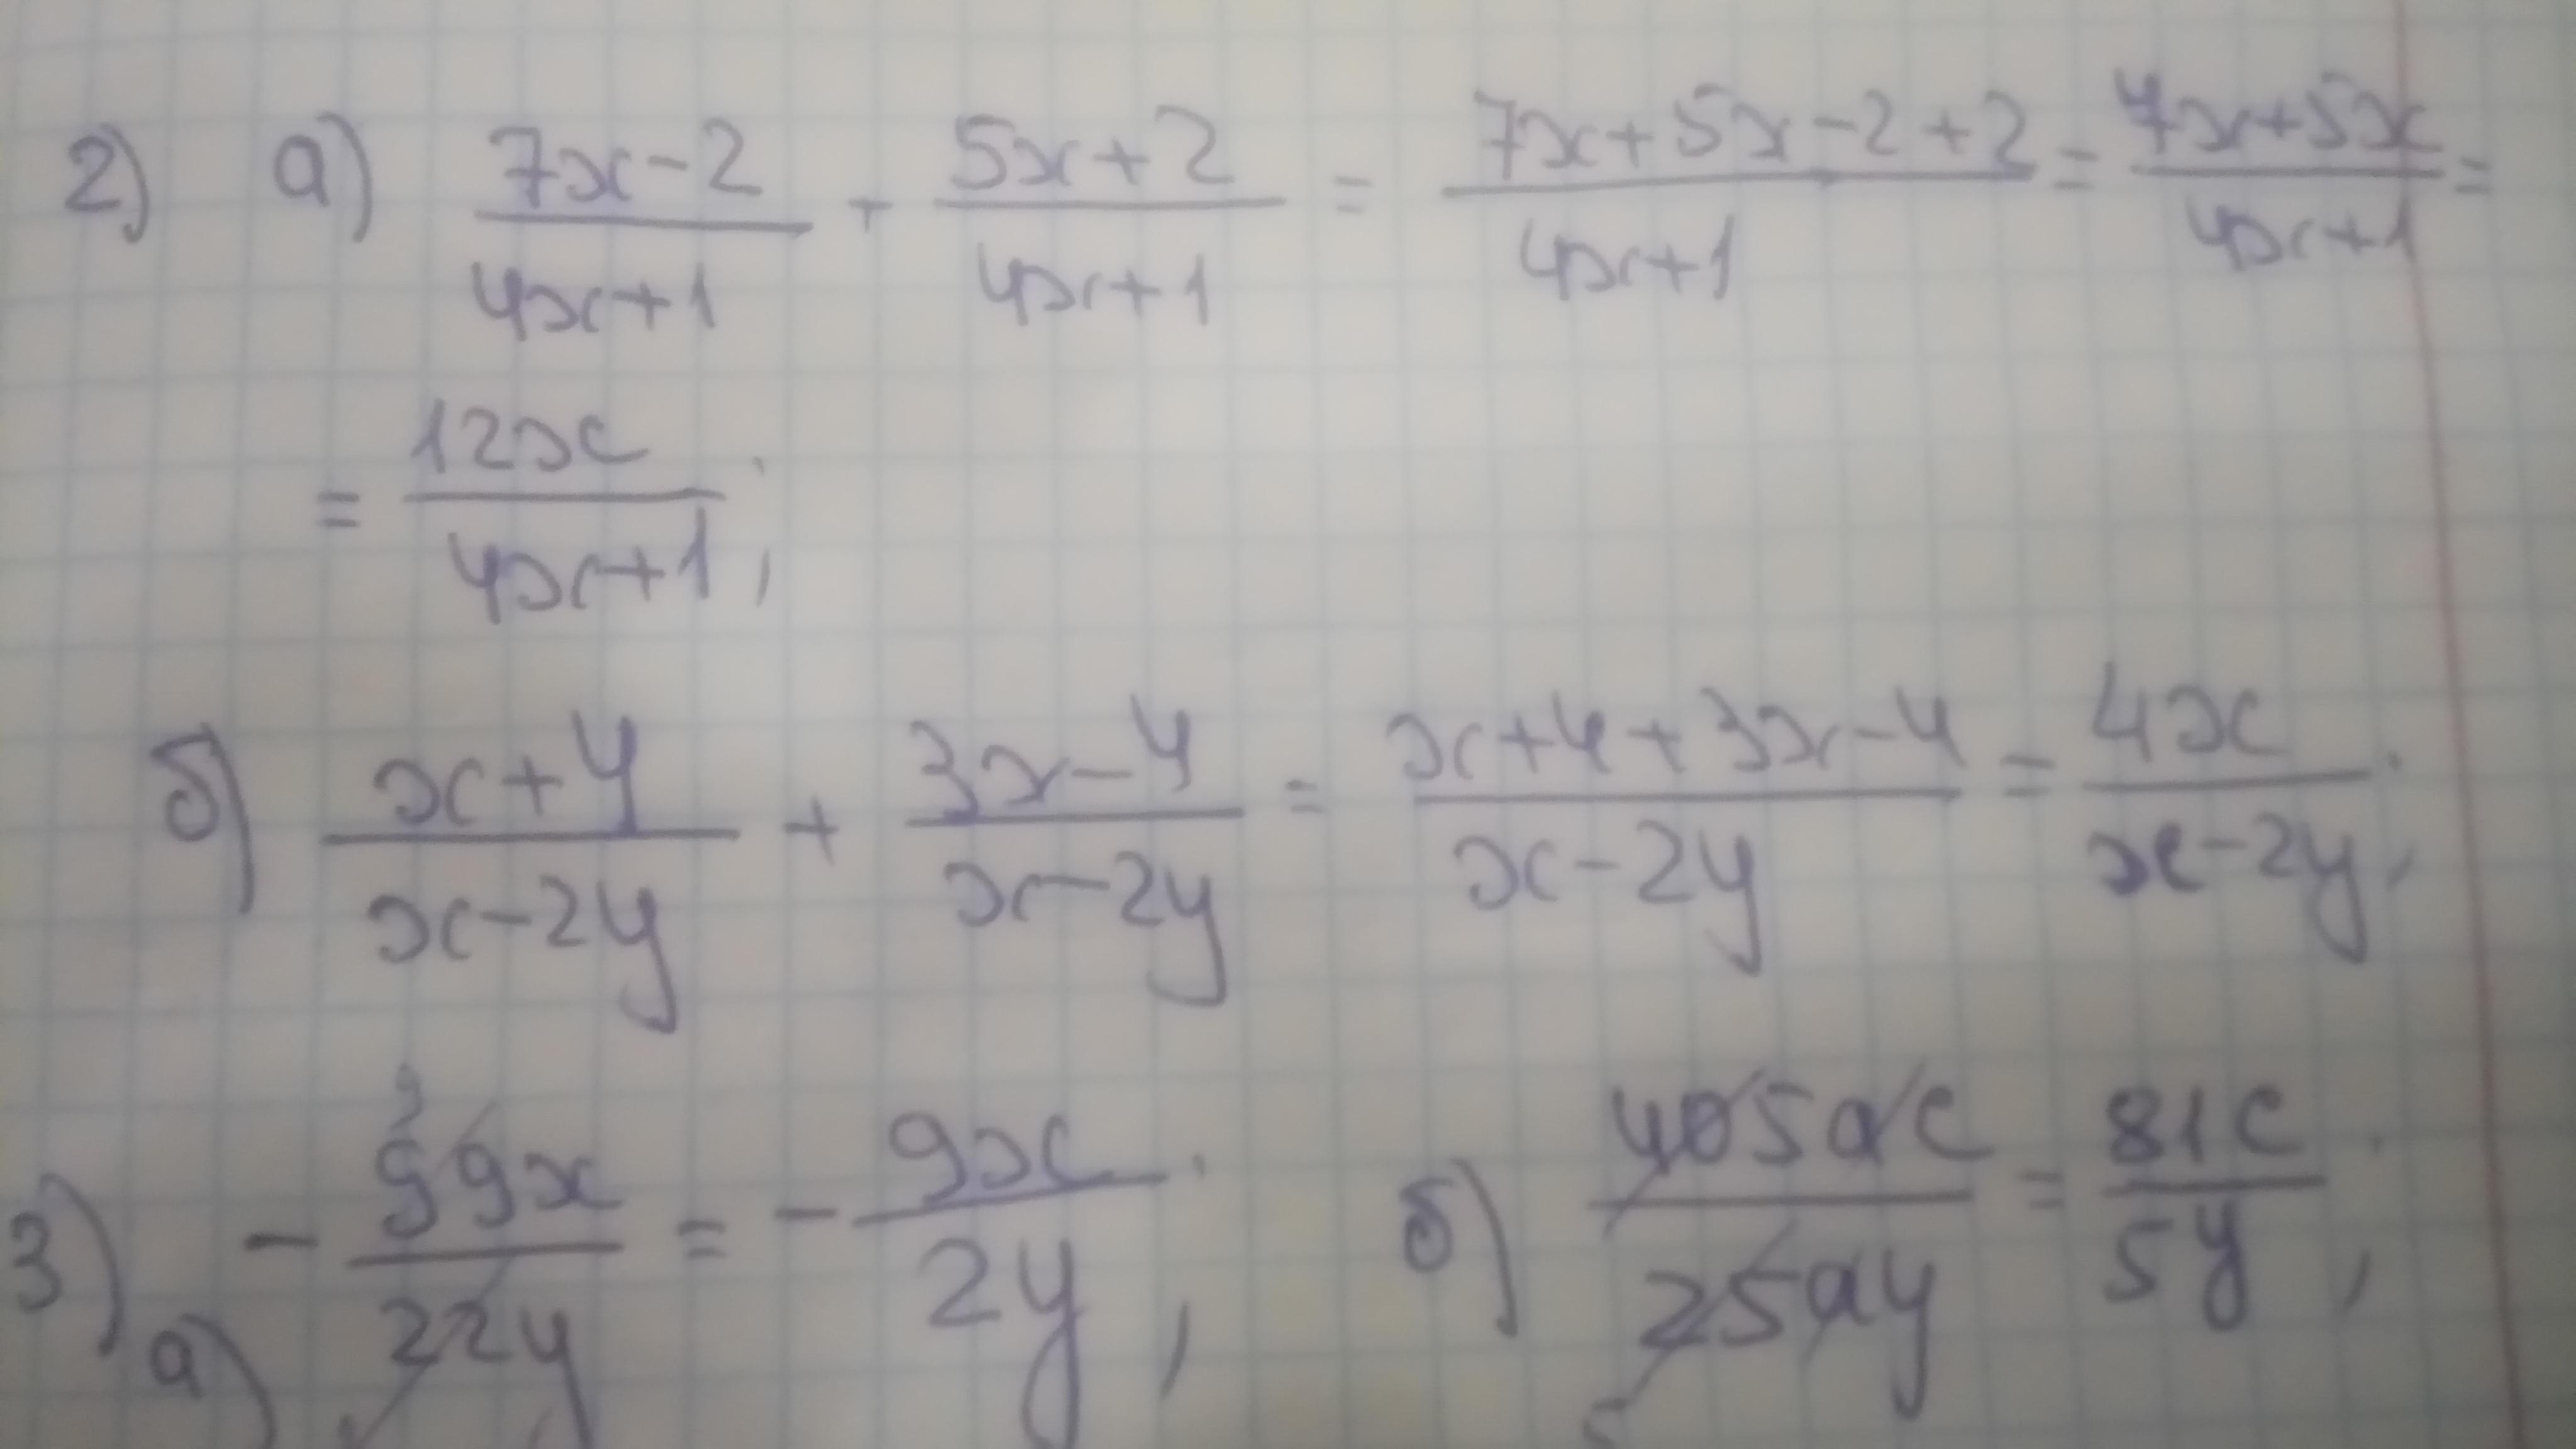 2) а) (7x-2)/(4x+1) + (5x+2)/(4x+1) = (7x+5x-2+2)/(4x+1) = (7x+5x)/(4x+1) =
= 12x/(4x+1);
б) (x+4)/(x-2y) + (3x-4)/(x-2y) = (x+4+3x-4)/(x-2y) = 4x/(x-2y);
3) а) - 99x/22y = - 9x/2y; б) 405ac/25ay = 81c/5y;